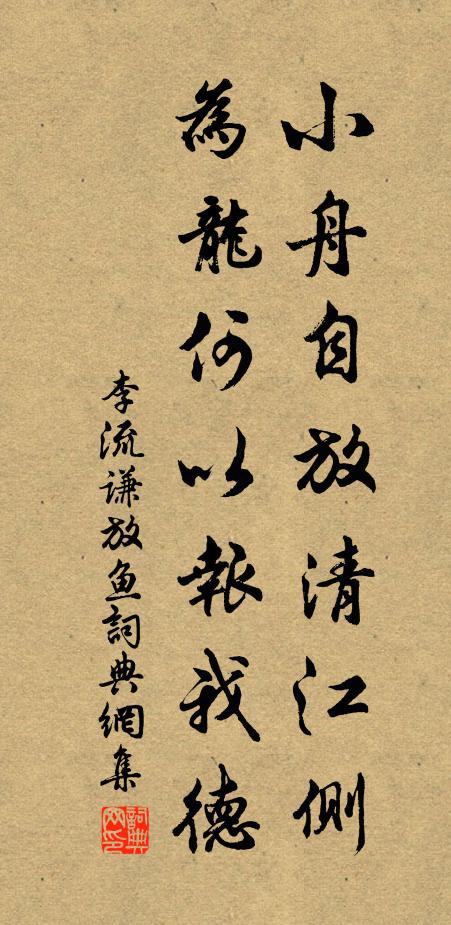 小舟自放清江側
為龍何以報我德
李流谦放鱼詞典網集
詞典網印